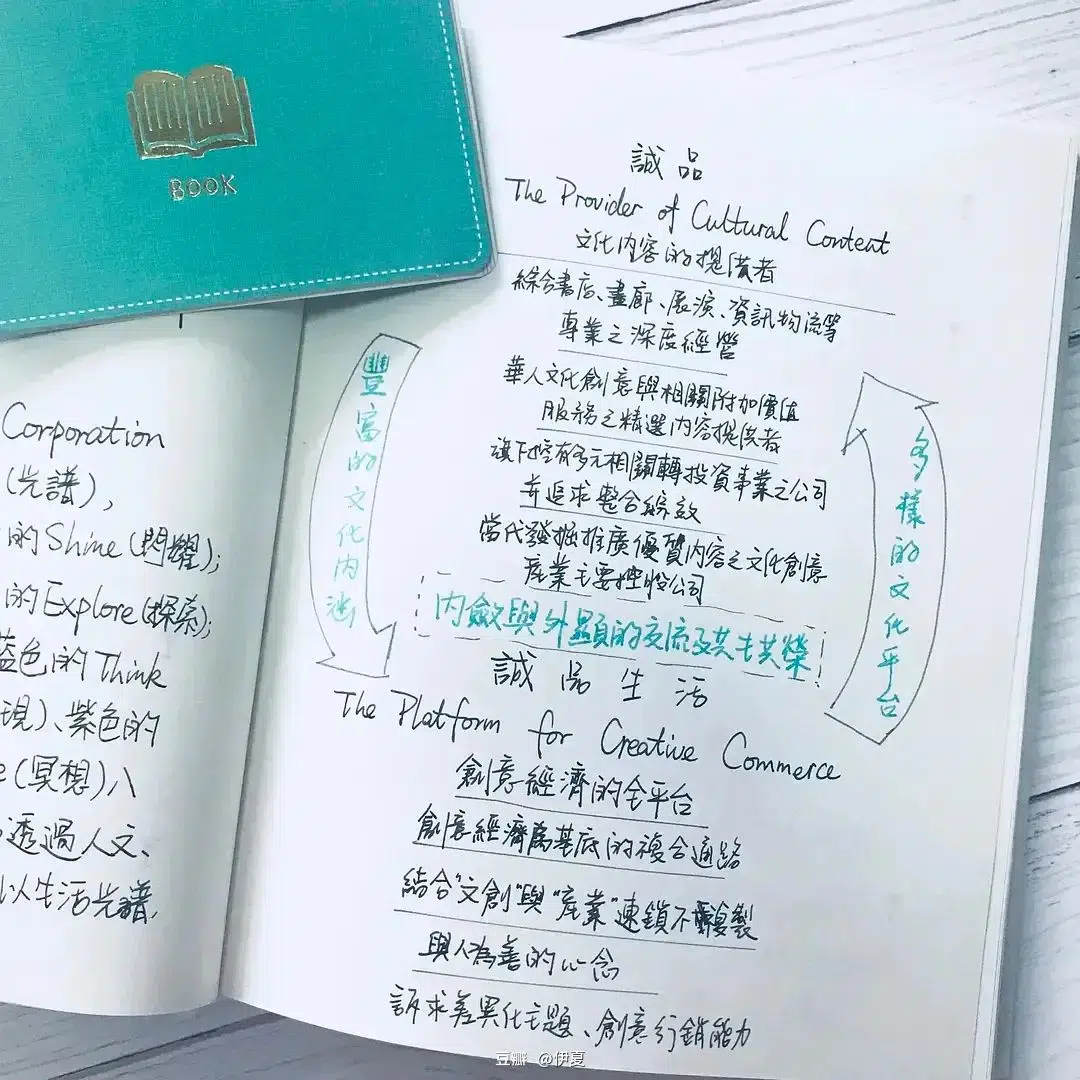 BOOK
Corporation
(光譜),
的Shine(閃耀);
的Explore(探索);
藍色的Think
現)、紫色的
e(冥想)八
透過人文、
以生活光譜,
誠品
The Provider of Cultural Content
文化內容的提供者
綜合書店、畫廊、展演、資訊物流等
專業之深度經營
華人文化創意與相關附加價值
服務之精選內容提供者
旗下控有多元相關轉投資事業之公司
並追求整合綜效
當代發掘推廣優質內容之文化創意
產業主要控股公司
豐富的文化內涵
多樣的文化平台
內斂與外顯的交流及共生共榮
誠品生活
The Platform for Creative Commerce
創意經濟的全平台
創意經濟為基底的複合通路
結合"文創"與"產業"連鎖不複製
與人為善的心念
訴求差異化主題、創意行銷能力
豆瓣 @伊夏